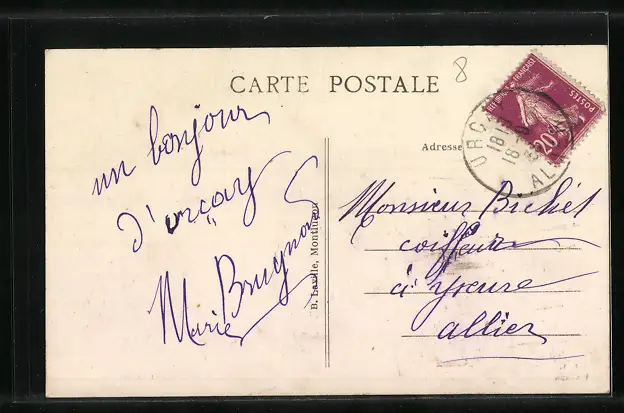 CARTE POSTALE
8
un bonjour
d'urcay
Marie Brugnon
B. Laville, Montluçon
RÉPUBLIQUE FRANÇAISE
POSTES
20c
URÇAY
18
ALLIER
Adresse
Monsieur Bichet
coiffeur
à ygeure
allier